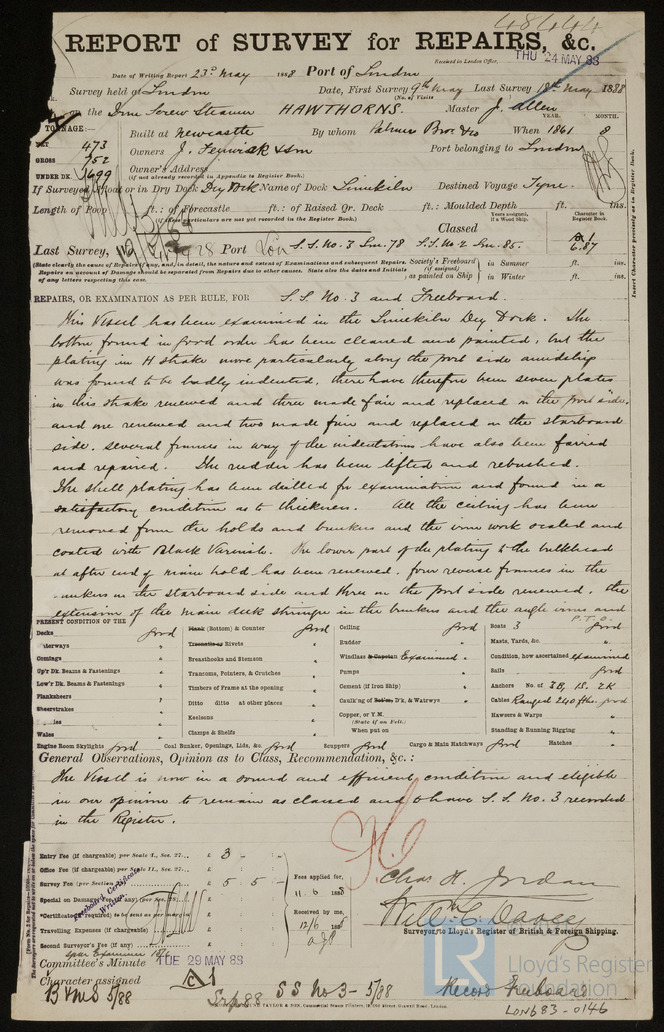 48444
REPORT of SURVEY for REPAIRS, &c.
Received in London Office, THU 24 MAY 88
Date of Writing Report 23rd May 1888 Port of London
Survey held at London Date, First Survey 9th May Last Survey 18th May 1888
(No. of Visits
on the Iron Screw Steamer HAWTHORNS. Master J. Allen
YEAR. MONTH.
TONNAGE:—
Built at Newcastle By whom Palmer Bros & Co When 1861 8
NET 473
GROSS 752
UNDER DK. 699
Owners J. Fenwick & Son Port belonging to London
Owner's Address
(if not already recorded in Appendix to Register Book.)
If Surveyed Afloat or in Dry Dock Dry Dock Name of Dock Limekiln Destined Voyage Tyne.
Length of Poop ft.: of Forecastle ft.: of Raised Qr. Deck ft.: Moulded Depth ft. ins.
(If these particulars are not yet recorded in the Register Book.)
Years assigned, if a Wood Ship.
Character in Register Book.
Insert Character precisely as in Register Book.
Classed
Last Survey, Port Lon S.S. No. 3 Lon. 78 S.S. No 2 Lon. 85. 6.87
(State clearly the cause of Repairs, if any, and, in detail, the nature and extent of Examinations and subsequent Repairs.
Repairs on account of Damage should be separated from Repairs due to other causes. State also the dates and Initials
of any letters respecting this case.
Society's Freeboard (if assigned) as painted on Ship
in Summer ft. ins.
in Winter ft. ins.
REPAIRS, OR EXAMINATION AS PER RULE, FOR S.S. No. 3 and Freeboard.
This Vessel has been examined in the Limekiln Dry Dock. The
bottom found in good order has been cleaned and painted, but the
plating in H strake more particularly along the port side amidship
was found to be badly indented, there have therefore been seven plates
in this strake renewed and three made fair and replaced on the port side,
and one renewed and two made fair and replaced on the starboard
side. Several frames in way of the indentations have also been faired
and repaired. The rudder has been lifted and rebushed.
The shell plating has been drilled for examination and found in a
satisfactory condition as to thickness. All the ceiling has been
removed from the holds and bunkers and the iron work scaled and
coated with Black Varnish. The lower part of the plating to the bulkhead
at after end of main hold has been renewed, four reverse frames in the
bunkers on the starboard side and three on the port side renewed, the
extension of the main deck stringer in the bunkers and the angle irons and
P.T.O.
PRESENT CONDITION OF THE
Decks good
Waterways "
Comings "
Up'r Dk. Beams & Fastenings "
Low'r Dk. Beams & Fastenings "
Planksheers "
Sheerstrakes "
Wales "
Plank (Bottom) & Counter good
Treenails or Rivets "
Breasthooks and Stemson "
Transoms, Pointers, & Crutches "
Timbers of Frame at the opening
Ditto ditto at other places "
Keelsons "
Clamps & Shelfs "
Ceiling good
Rudder "
Windlass & Capstan Examined "
Pumps "
Cement (if Iron Ship) "
Caulk'ng of Bot'm, D'k, & Watrwys "
Copper, or Y.M.
(State if on Felt.)
When put on
Boats 3 good
Masts, Yards, &c. "
Condition, how ascertained examined
Sails good
Anchors No. of 3B, 1S, 2K
Cables Ranged 240 fths. good
Hawsers & Warps "
Standing & Running Rigging "
Engine Room Skylights good Coal Bunker, Openings, Lids, &c. good Scuppers good Cargo & Main Hatchways good Hatches "
General Observations, Opinion as to Class, Recommendation, &c.:
The Vessel is now in a sound and efficient condition and eligible
in our opinion to remain as classed and to have S.S. No. 3 recorded
in the Register.
Entry Fee (if chargeable) per Scale I., Sec. 27... £ 3 - -
Office Fee (if chargeable) per Scale II., Sec. 27... £
Survey Fee (per Section £ 5 5 -
Special on Damage Fee (if any) (per Sec. £
*Certificate (if required) to be sent as per margin £
Travelling Expenses (if chargeable) £
Second Surveyor's Fee (if any) £
Freeboard Certificate
Written
Fees applied for,
11/6 1888
Received by me,
12/6 1888
Chas. H. Jordan
Surveyor to Lloyd's Register of British & Foreign Shipping.
Committee's Minute TUE 29 MAY 88
Character assigned
B&MS 5/88 SS No 3 - 5/88 Record Freeboard
Lloyd's Register
Foundation
LON683-0146